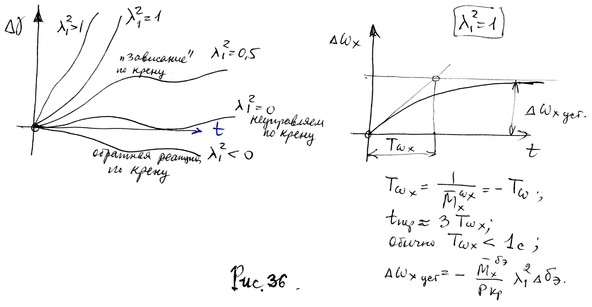 Δγ
λ₁²>1
λ₁²=1
"Зависание"
по крену
λ₁²=0,5
λ₁²=0
неуправляем
по крену
t
обратная реакция
по крену
λ₁²<0
Рис. 36.
λ₁²=1
Δωx
Δωx уст.
Tωx
t
Tωx = 1 / M̄x^ωx = - Tω ;
tпер ≈ 3 Tωx ;
обычно Tωx < 1с ;
Δωx уст = - M̄x^δэ / Pкр λ₁² Δδэ.